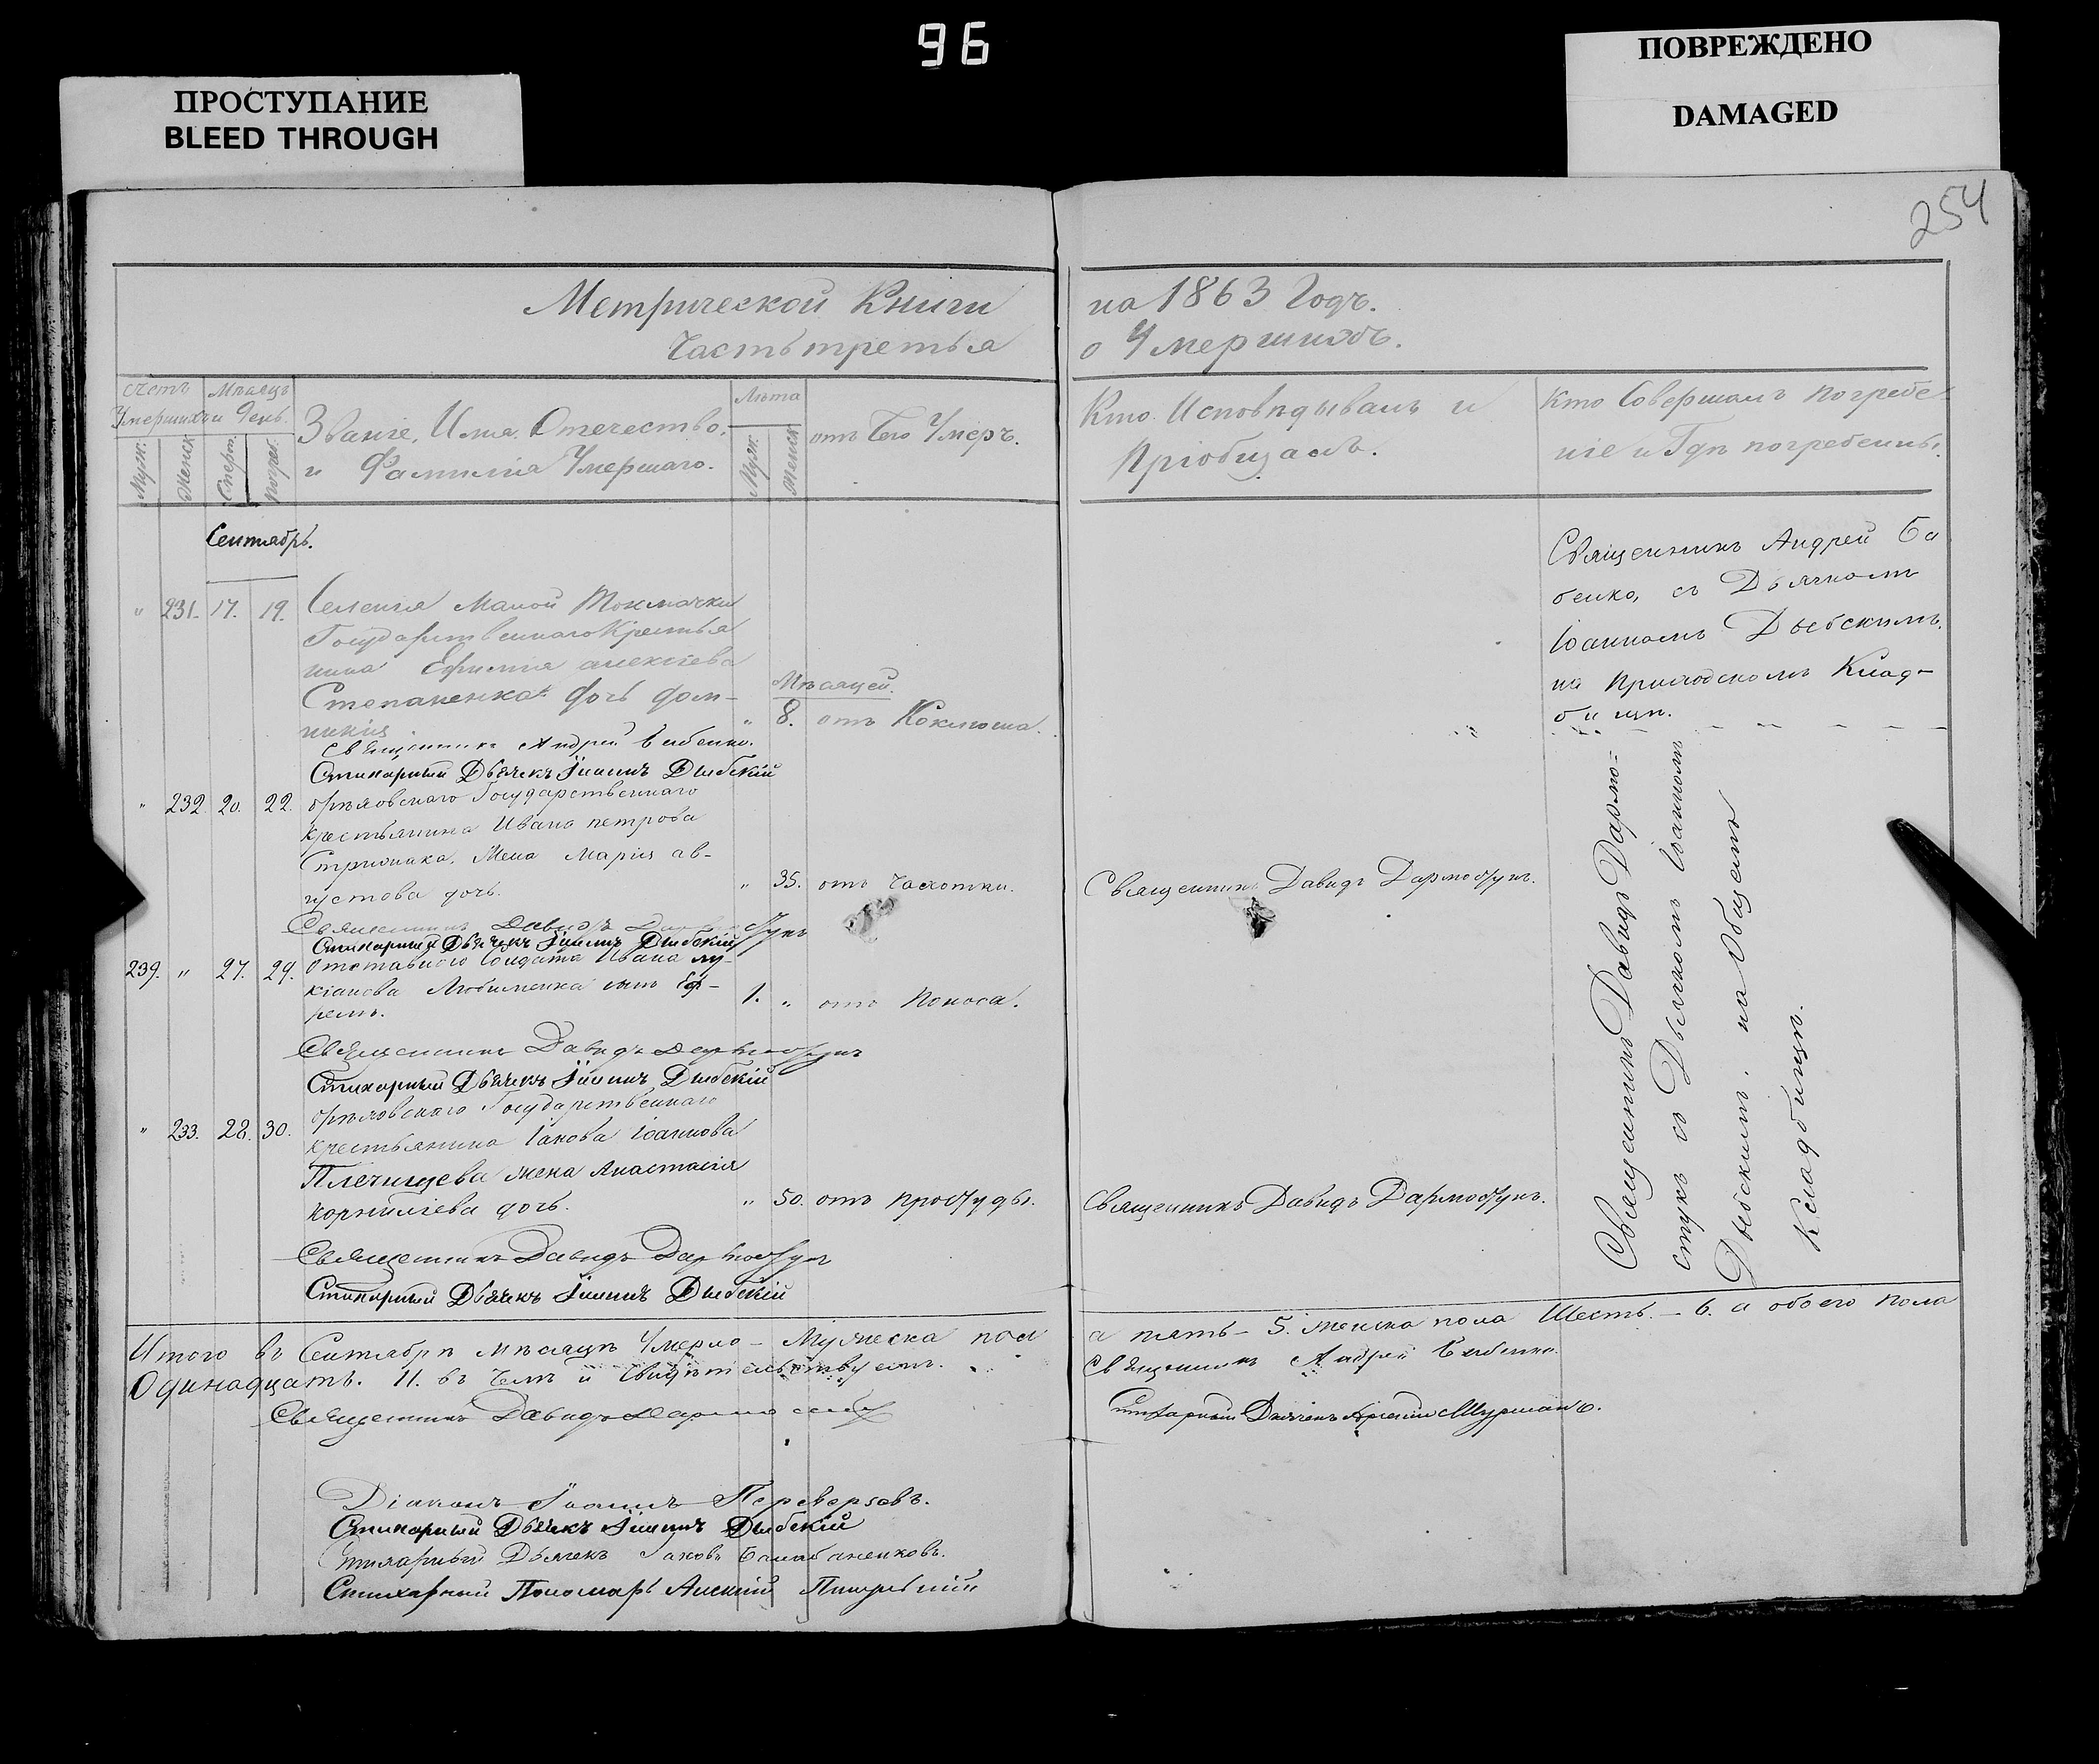 96
ПРОСТУПАНИЕ
BLEED THROUGH
ПОВРЕЖДЕНО
DAMAGED
254
Метрической Книги
Часть третья
на 1863 Годъ.
о Умершихъ.
Счетъ Умершихъ
Мѣсяцъ и День.
Муж.
Женск.
Смерт.
Погреб.
Званіе, Имя, Отечество,
и Фамилія Умершаго.
Лѣта
Муж.
Женск.
отъ Чего Умеръ.
Кто Исповѣдывалъ и
Пріобщалъ.
Кто Совершалъ погребе
ніе и Гдѣ погребены.
Сентябрь.
" 231. 17. 19. Селенія Малой Токмачки
Государственнаго Крестья
нина Ефимія алексіева
Степаненка дочь дом-
никія
Мѣсяцей.
" 8. отъ Коклюша.
"
Священникъ Андрей Ба
бенко, съ Дьячкомъ
Іоанномъ Дыбскимъ.
на приходскомъ Клад-
бищѣ.
Священникъ Андрей Бабенко.
Стихарный Дьячекъ Іоаннъ Дыбскій
" 232. 20. 22. орѣховскаго Государственнаго
крестьянина Ивана петрова
Стрижака, Жена Марія ав-
густова дочь.
" 35. отъ Чахотки.
Священникъ Давидъ Дармостукъ.
Священникъ Давидъ
Стихарный Дьячекъ Іоаннъ Дыбскій
239. " 27. 29. Отставного Солдата Ивана лу-
кіанова Любименка сынъ Еф-
ремъ.
1. " отъ Поноса.
Священникъ Давидъ Дармостукъ
Стихарный Дьячекъ Іоаннъ Дыбскій
" 233. 28. 30. орѣховскаго Государственнаго
крестьянина Іакова Іоаннова
Плечищева жена Анастасія
корниліева дочь.
" 50. отъ простуды.
Священникъ Давидъ Дармостукъ.
Священникъ Давидъ Дармостукъ
Стихарный Дьячекъ Іоаннъ Дыбскій
Священникъ Давидъ Дармо-
стукъ съ Дьячкомъ Іоанномъ
Дыбскимъ, на Общемъ
Кладбищѣ.
Итого въ Сентябрѣ мѣсяцѣ Умерло – Мужеска пол
а пять – 5. женска пола Шесть. – 6. а обоего пола
Одинадцать. 11. въ Чемъ и Свидѣтельствуемъ.
Священникъ Давидъ
Священникъ Андрей Бабенко.
Стихарный Дьячекъ
Діаконъ Іоаннъ Переверзевъ.
Стихарный Дьячекъ Іоаннъ Дыбскій
Стихарный Дьячекъ Іаковъ Балабаненковъ.
Стихарный Пономарь